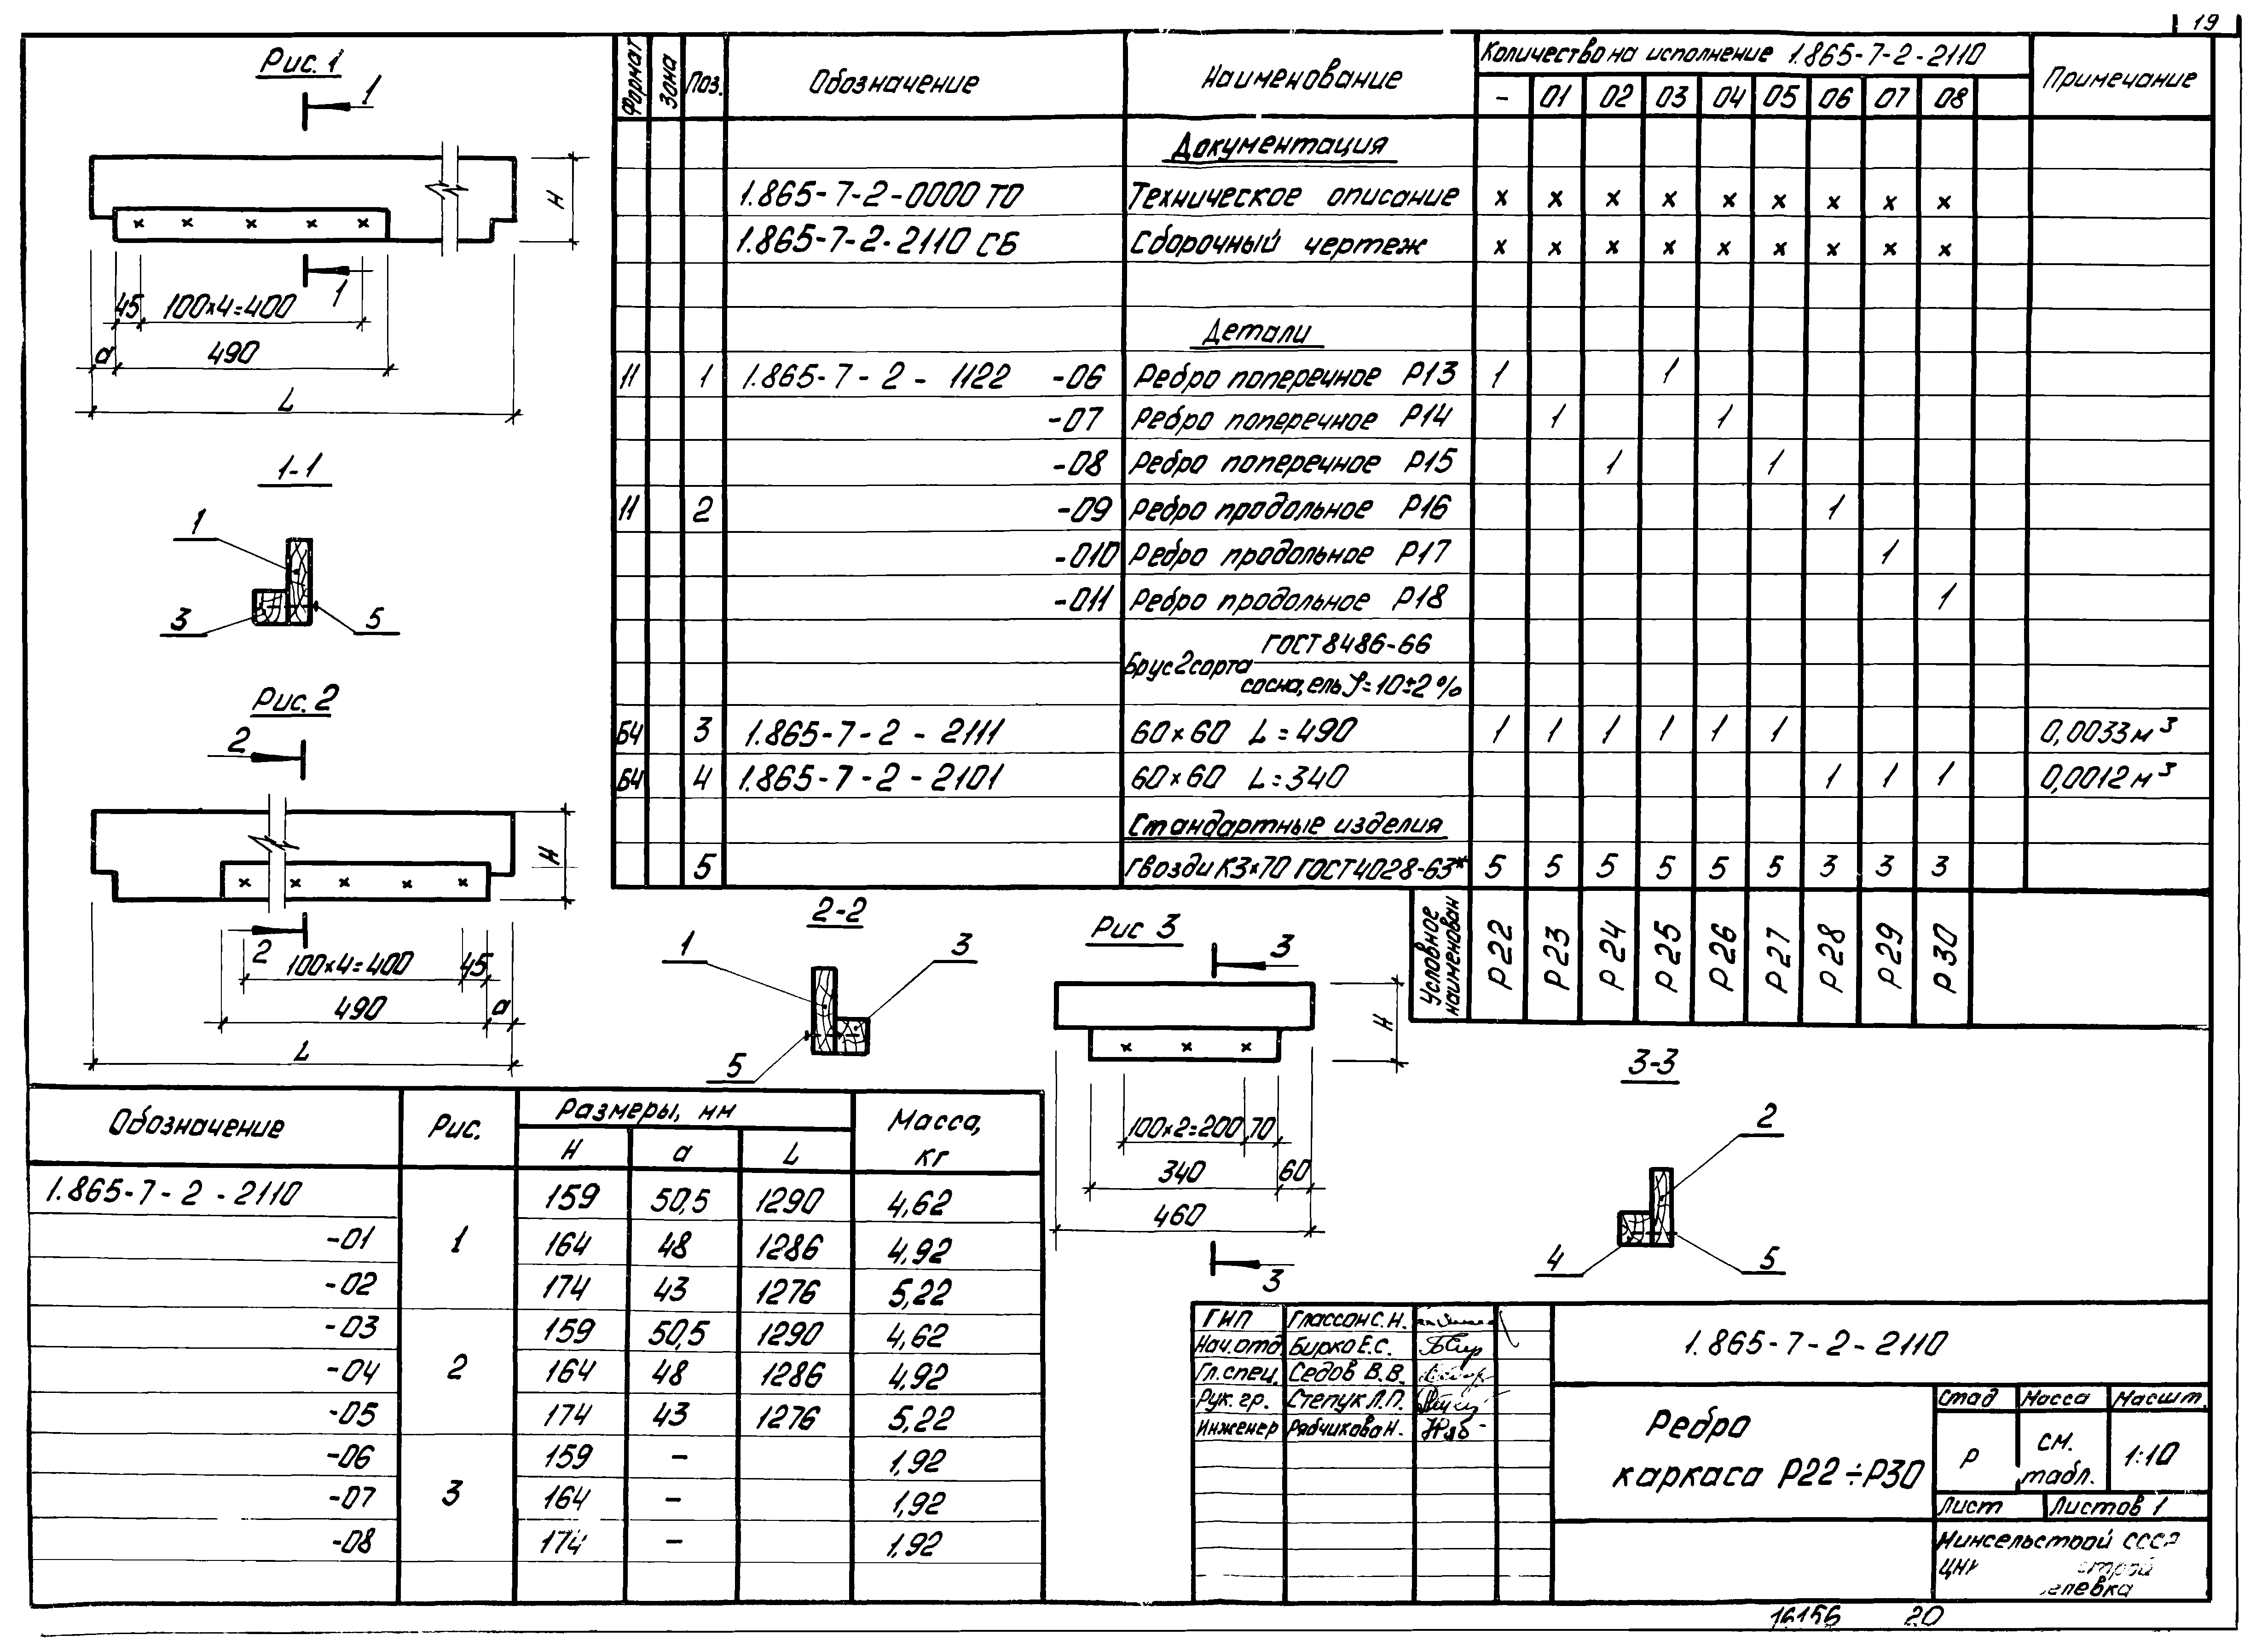 19
Рис. 1
1
1
H
45
100×4=400
a
490
L
1-1
1
3
5
Рис. 2
2
2
H
100×4=400
45
490
a
L
Формат Зона Поз. Обозначение Наименование Количество на исполнение 1.865-7-2-2110 Примечание
- 01 02 03 04 05 06 07 08
Документация
1.865-7-2-0000 ТО Техническое описание x x x x x x x x x
1.865-7-2-2110 СБ Сборочный чертеж x x x x x x x x x
Детали
11 1 1.865-7-2-1122 -06 Ребро поперечное Р13 1 1
-07 Ребро поперечное Р14 1 1
-08 Ребро поперечное Р15 1 1
11 2 -09 Ребро продольное Р16 1
-010 Ребро продольное Р17 1
-011 Ребро продольное Р18 1
Брус 2 сорта ГОСТ 8486-66
сосна, ель φ=10±2%
БЧ 3 1.865-7-2-2111 60×60 L=490 1 1 1 1 1 1 0,0033 м³
БЧ 4 1.865-7-2-2101 60×60 L=340 1 1 1 0,0012 м³
Стандартные изделия
5 гвозди К3×70 ГОСТ 4028-63* 5 5 5 5 5 5 3 3 3
Условное наименован Р22 Р23 Р24 Р25 Р26 Р27 Р28 Р29 Р30
2-2
1
3
5
Рис 3
3
3
H
100×2=200
70
340
60
460
3-3
2
4
5
Обозначение Рис. Размеры, мм Масса, кг
H a L
1.865-7-2-2110 159 50,5 1290 4,62
-01 1 164 48 1286 4,92
-02 174 43 1276 5,22
-03 159 50,5 1290 4,62
-04 2 164 48 1286 4,92
-05 174 43 1276 5,22
-06 159 - 1,92
-07 3 164 - 1,92
-08 174 - 1,92
ГИП Глассон С.Н.
Нач. отд. Бирко Е.С.
Гл. спец. Седов В.В.
Рук. гр. Степук Л.П.
Инженер Рябчикова Н.
1.865-7-2-2110
Ребро
каркаса Р22÷Р30
Стад Масса Масшт.
Р см. табл. 1:10
Лист Листов 1
Минсельстрой СССР
16156 20